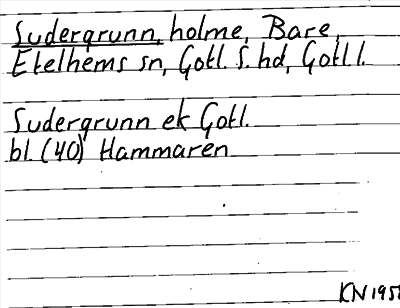 Sudergrunn, holme, Bare,
Etelhems sn, Gotl. S. hd, Gotl. l.
Sudergrunn ek Gotl.
bl. (40) Hammaren
KN 195